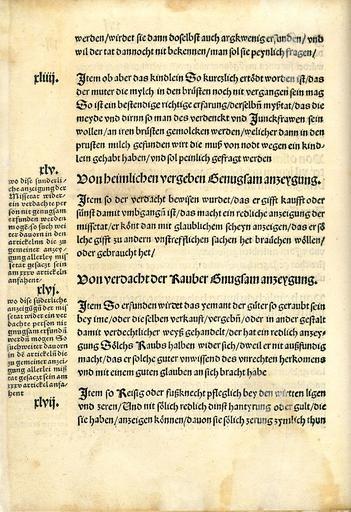 werden/wirdet sie dann doselbst auch argkwenig erfunden/ vnd
wil der tat dannocht nit bekennen/man sol sie peynlich fragen/
xliiij.
Item ob aber das kindlein So kurczlich ertödt worden ist/das
der muter die mylch in den brüsten noch nit vergangen sein mag
So ist ein bestendige richtige erfarung/derselbñ myßtat/das die
meyde vnd dirnn so man des verdenckt vnd Junckfrawen sein
wollen/an iren brüsten gemolcken werden/welicher dann in den
prusten milch gefunden wirt die muß von nodt wegen ein kind-
lein gehabt haben/vnd sol peinlich gefragt werden
xlv.
Von heimlichen vergeben Genugsam anzeygung.
wo dise sunderli-
che anzeigung der
Missetat wider
ein verdachte per
son nit genugsam
erfunden werden
möge so such wei
ter da oen in dẽ
artickelnn die zu
gemeiner anzey-
gung allerley mis
setat gesaczt sein
am xxxv artickeln
anfahent
Item so der verdacht bewisen wurdet/das er gifft kaufft oder
sünst damit vmbgangñ ist/das macht ein redliche anzeigung der
missetat/er könt dan mit glaublichem scheyn anzeigen/das er sö
lche gifft zu andern vnstrefflichen sachen het brauchen wöllen/
oder gebraucht het/
xlvj.
Von verdacht der Rauber Gnugsam anzeygung.
wo dise sũderliche
anzeigũg der mis
setat wider ein ver
dachte person nit
gnugsam erfundẽ
werdñ mögen So
such weiter da oen
in dẽ artickelñ die
zu gemeiner anzei-
gung allerlei miß
tat gesaczt sein am
xxxv artickel anfa-
hent
Item So erfunden wirdet das yemant der güter so geraubt sein
bey ime/oder die selben verkauft/vergebñ/oder in ander gestalt
damit verdechtlicher weyß gehandelt/der hat ein redlich anzey-
gung Sölchs Raubs halben wider sich/dweil er nit außfundig
macht/das er solche guter vnwissend des vnrechten herkomens
vnd mit einem guten glauben an sich bracht habe
xlvij.
Item so Reisig oder fußknecht pfleglich bey den wirten ligen
vnd zeren/Und nit sölich redlich dinst hantyrung oder gult/die
sie haben/anzeigen können/dauon sie sölich zerung zymlich thun